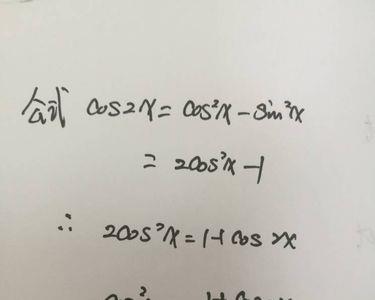 公式 cos2x = cos²x - sin²x
= 2cos²x - 1
∴ 2cos²x = 1+cos2x